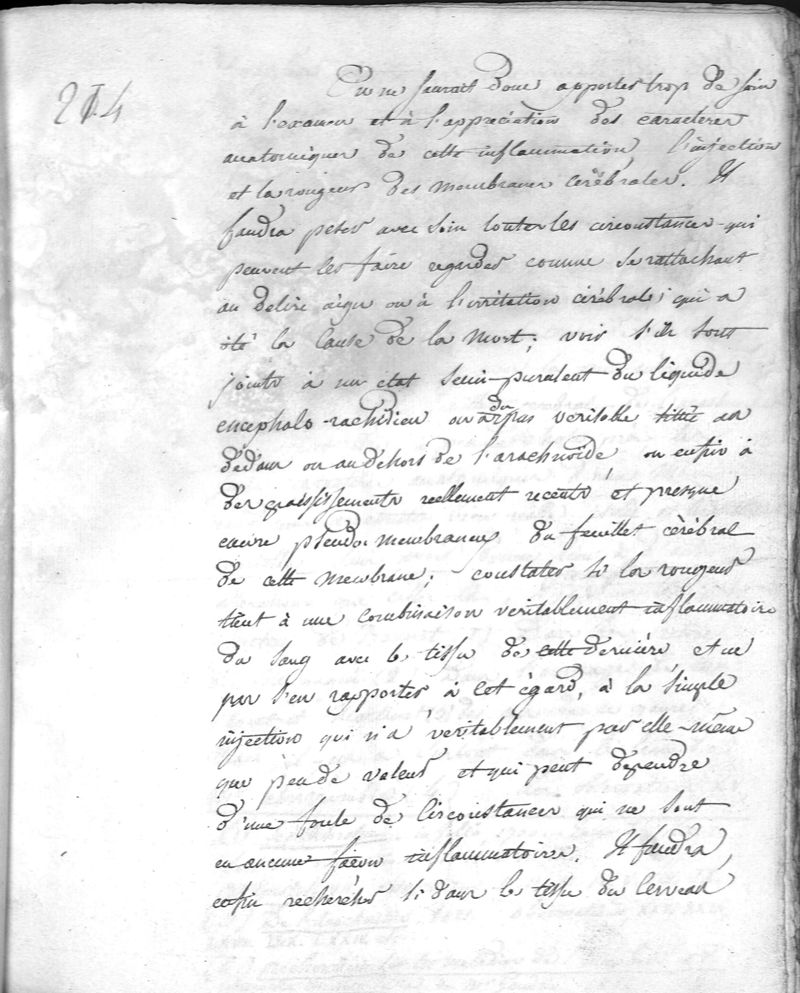 214
On ne saurait donc apporter trop de soin
à l'examen et à l'appréciation des caracteres
anatomiques de cette inflammation, l'injection
et la rougeur des membranes cérébrales. Il
faudra peser avec soin toutes les circonstances qui
peuvent les faire regarder comme se rattachant
au delire aigu ou à l'irritation cérébrale, qui a
été la cause de la mort; voir s'ils sont
joints à un état semi-purulent du liquide
encephalo-rachidien ou à du pus veritable au
dedans ou au dehors de l'arachnoïde ou enfin à
des epaississements reellement recents et presque
encore pseudo-membraneux du feuillet cérébral
de cette membrane; constater si la rougeur
tient à une combinaison veritablement inflammatoire
du sang avec le tissu de cette dernière et ne
pas s'en rapporter à cet égard, à la simple
injection qui n'a véritablement par elle-même
que peu de valeur et qui peut dependre
d'une foule de circonstances qui ne sont
en aucune façon inflammatoires. Il faudra,
enfin rechercher si dans le tissu du cerveau